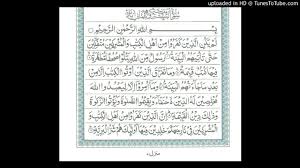 uploaded in HD @ TunesToTube.com
بِسْمِ اللّٰهِ الرَّحْمٰنِ الرَّحِيْمِ
لَمْ يَكُنِ الَّذِيْنَ كَفَرُوْا مِنْ اَهْلِ الْكِتٰبِ وَالْمُشْرِكِيْنَ مُنْفَكِّيْنَ
حَتّٰى تَاْتِيَهُمُ الْبَيِّنَةُ رَسُوْلٌ مِّنَ اللّٰهِ يَتْلُوْا صُحُفًا مُّطَهَّرَةً
فِيْهَا كُتُبٌ قَيِّمَةٌ وَمَا تَفَرَّقَ الَّذِيْنَ اُوْتُوا الْكِتٰبَ اِلَّا
مِنْ بَعْدِ مَا جَآءَتْهُمُ الْبَيِّنَةُ وَمَآ اُمِرُوْٓا اِلَّا لِيَعْبُدُوا اللّٰهَ
مُخْلِصِيْنَ لَهُ الدِّيْنَ حُنَفَآءَ وَيُقِيْمُوا الصَّلٰوةَ وَيُؤْتُوا الزَّكٰوةَ
وَذٰلِكَ دِيْنُ الْقَيِّمَةِ اِنَّ الَّذِيْنَ كَفَرُوْا مِنْ اَهْلِ الْكِتٰبِ وَ
الْمُشْرِكِيْنَ فِيْ نَارِ جَهَنَّمَ خٰلِدِيْنَ فِيْهَا اُولٰٓئِكَ هُمْ شَرُّ الْبَرِيَّةِ